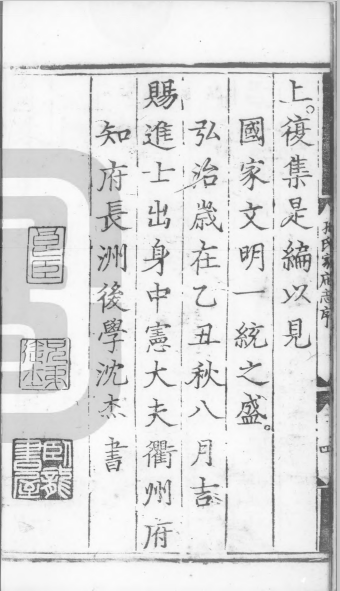 上。復集是編以見
國家文明一統之盛。
弘治歲在乙丑秋八月吉
賜進士出身中憲大夫衢州府
知府長洲後學沈杰書
氏家廟志序
四
臥龍
書屋